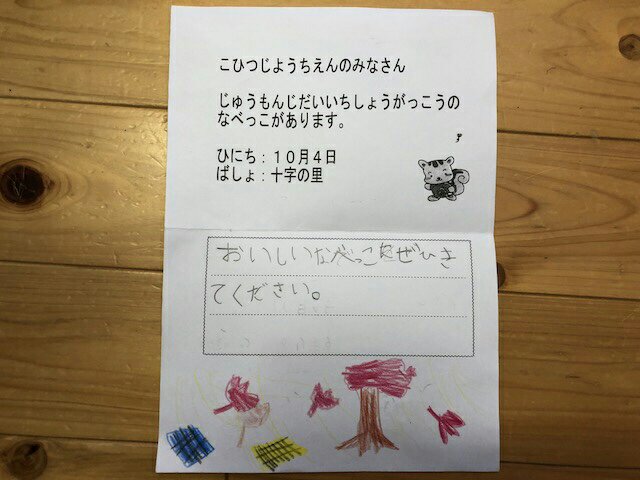 こひつじようちえんのみなさん
じゅうもんじだいいちしょうがっこうの
なべっこがあります。
ひにち：１０月４日
ばしょ：十字の里
おいしいなべっこだぜひき
てください。